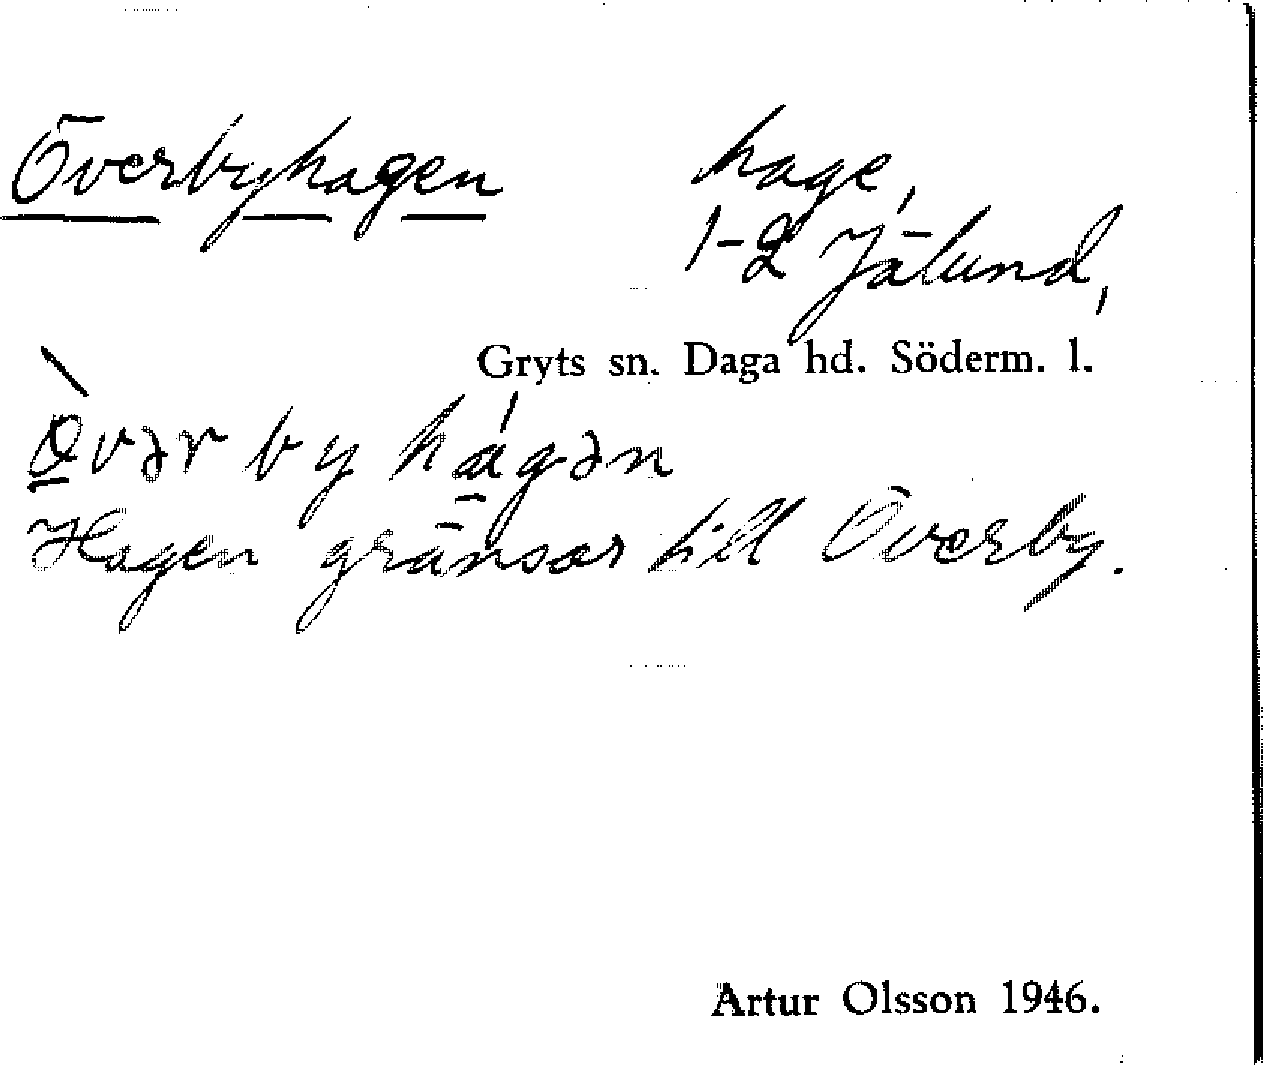 Överbyhagen hage,
1-2 Jälund,
Gryts sn. Daga hd. Söderm. l.
Ø̀vər by hágən
Hagen gränsar till Överby.
Artur Olsson 1946.